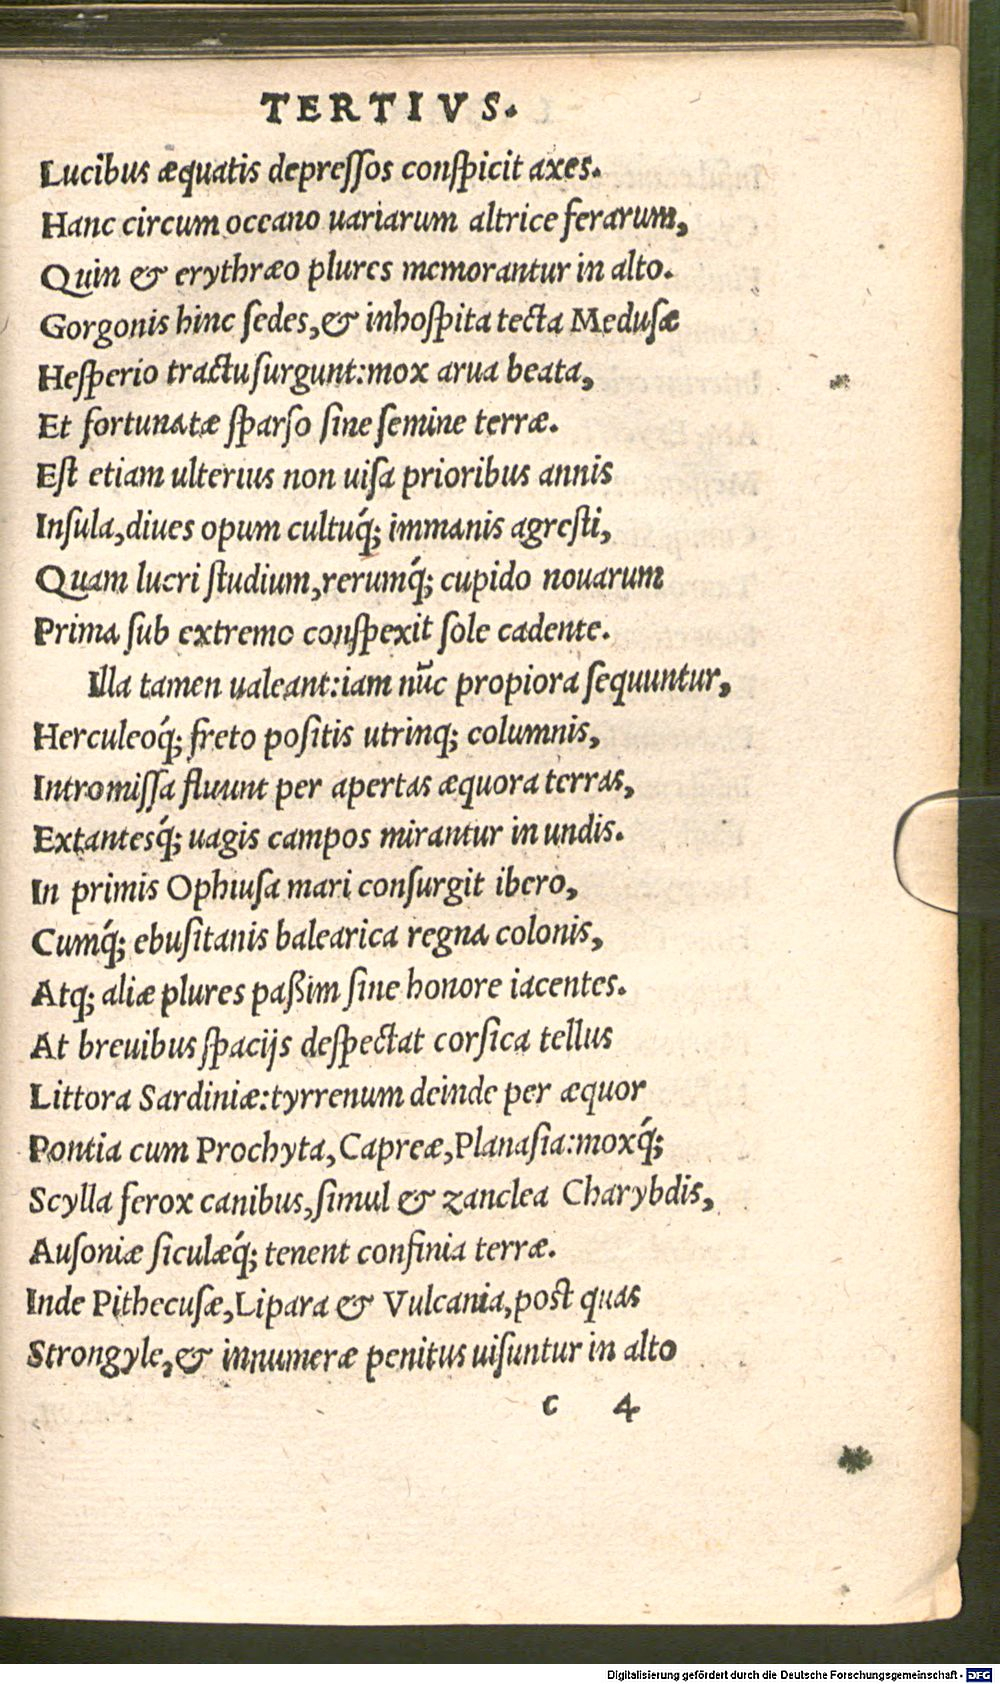 TERTIVS.
Lucibus æquatis depreſſos conſpicit axes.
Hanc circum oceano uariarum altrice ferarum,
Quin & erythræo plures memorantur in alto.
Gorgonis hinc ſedes, & inhoſpita tecta Meduſæ
Heſperio tractu ſurgunt: mox arua beata,
Et fortunatæ ſparſo ſine ſemine terræ.
Eſt etiam ulterius non uiſa prioribus annis
Inſula, diues opum cultuq́; immanis agreſti,
Quam lucri ſtudium, rerumq́; cupido nouarum
Prima ſub extremo conſpexit ſole cadente.
Illa tamen ualeant: iam nūc propiora ſequuntur,
Herculeoq́; freto poſitis utrinq; columnis,
Intromiſſa fluunt per apertas æquora terras,
Extantesq́; uagis campos mirantur in undis.
In primis Ophiuſa mari conſurgit ibero,
Cumq́; ebuſitanis balearica regna colonis,
Atq; aliæ plures paßim ſine honore iacentes.
At breuibus ſpacijs deſpectat corſica tellus
Littora Sardiniæ: tyrrenum deinde per æquor
Pontia cum Prochyta, Capreæ, Planaſia: moxq́;
Scylla ferox canibus, ſimul & zanclea Charybdis,
Auſoniæ ſiculæq́; tenent confinia terræ.
Inde Pithecuſæ, Lipara & Vulcania, poſt quas
Strongyle, & innumeræ penitus uiſuntur in alto
c 4
Digitalisierung gefördert durch die Deutsche Forschungsgemeinschaft - DFG